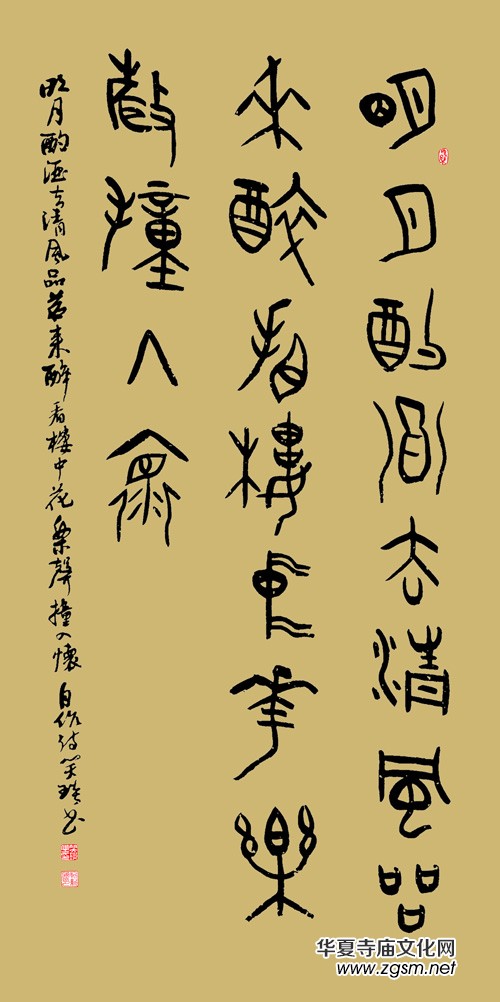 明月酌酒去清風品
来醉看樓中花樂
聲撞入懷
明月酌酒去清風品茗来醉看樓中花樂聲撞入懷 自作诗书
华夏寺庙文化网
www.zgsm.net